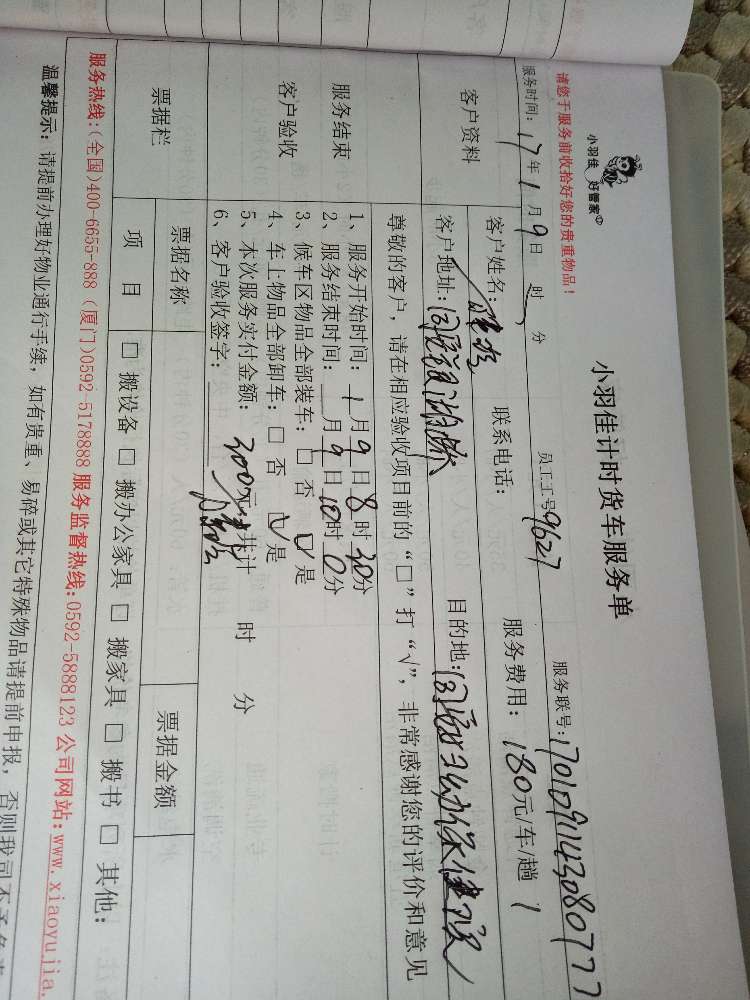 小羽佳 好管家
小羽佳计时货车服务单
请您于服务前收拾好您的贵重物品！
服务时间：17年1月9日 时 分 员工工号9627 服务联号：170109114308077７
客户资料
客户姓名： 联系电话： 服务费用：180元/车/趟 1
客户地址：同安 目的地：同安妇幼保健院
尊敬的客户，请在相应验收项目前的“□”打“√”，非常感谢您的评价和意见
服务结束
客户验收
1、服务开始时间：1月9日8时30分
2、服务结束时间：月9日10时0分
3、候车区物品全部装车：□ 否 □ 是
4、车上物品全部卸车：□ 否 □ 是
5、本次服务实付金额：300元 共计 时 分
6、客户验收签字：
票据栏 票据名称 票据金额
项 目 □ 搬设备 □ 搬办公家具 □ 搬家具 □ 搬书 □ 其他：
服务热线：(全国)400-6655-888 (厦门)0592-5178888 服务监督热线：0592-5888123 公司网站：www.xiaoyujia.
温馨提示：请提前办理好物业通行手续，如有贵重、易碎或其它特殊物品请提前申报，否则我司不予